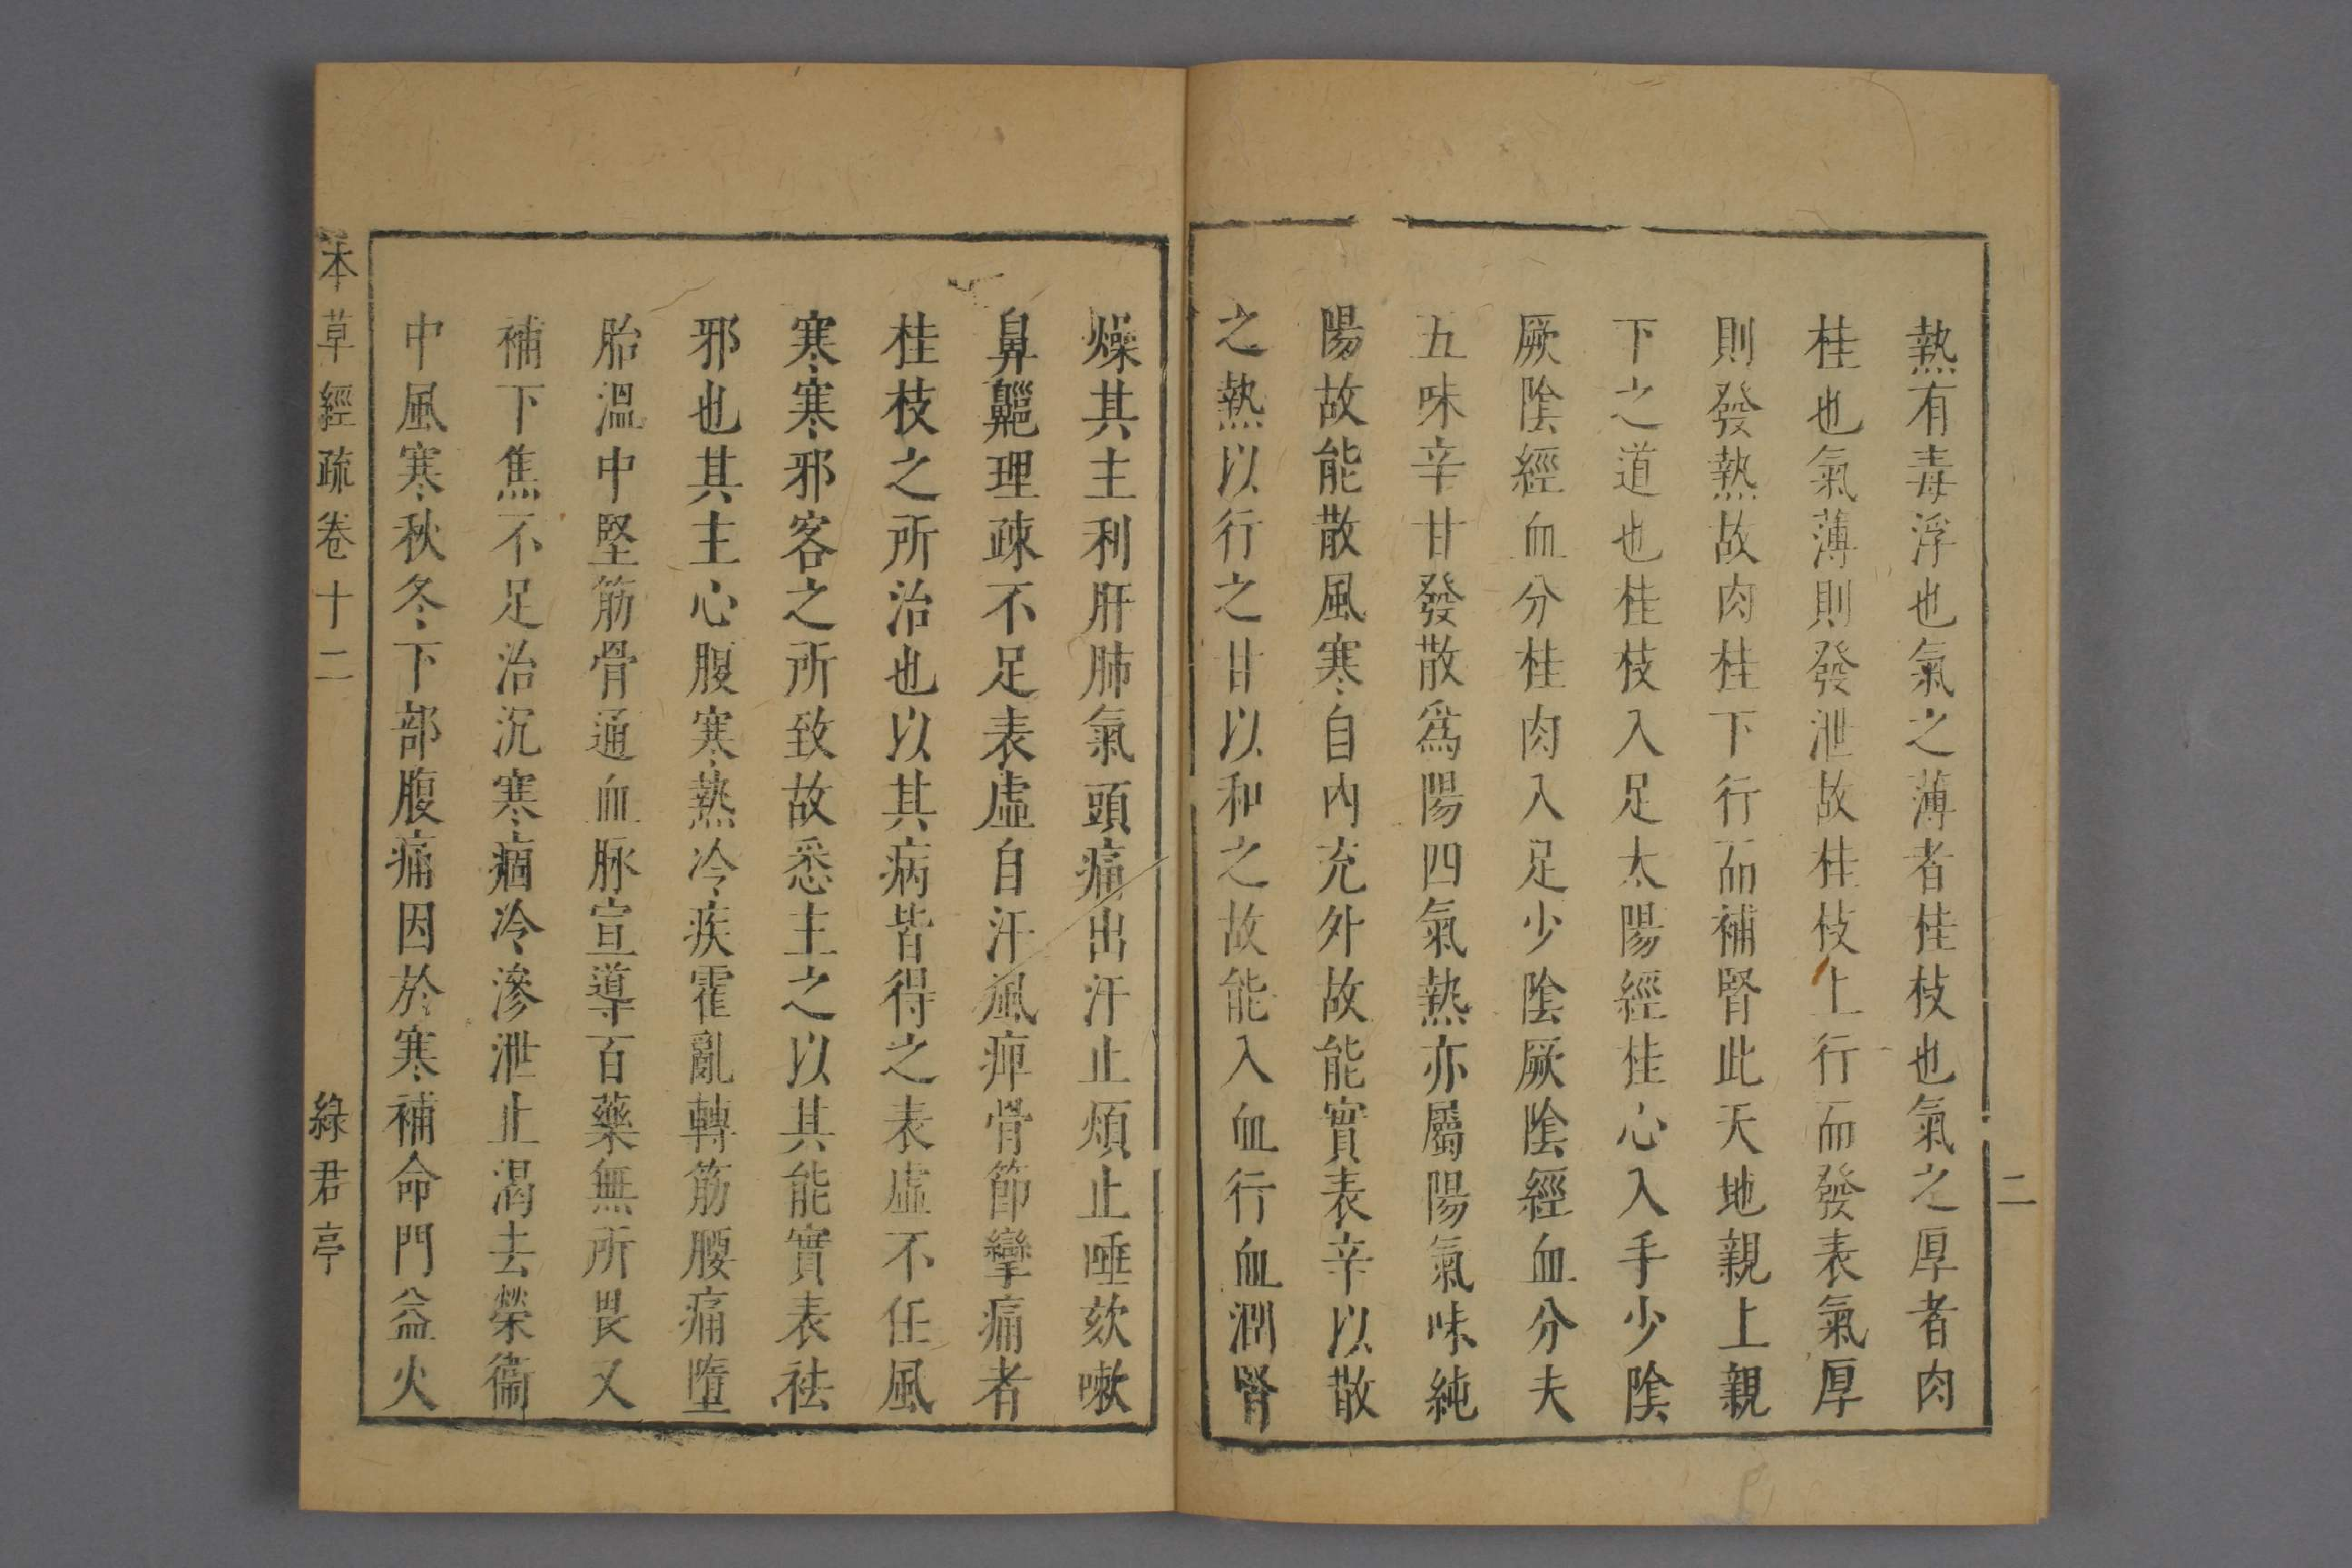 熱有毒浮也氣之薄者桂枝也氣之厚者肉
桂也氣薄則發泄故桂枝上行而發表氣厚
則發熱故肉桂下行而補腎此天地親上親
下之道也桂枝入足太陽經桂心入手少陰
厥陰經血分桂肉入足少陰厥陰經血分夫
五味辛甘發散爲陽四氣熱亦屬陽氣味純
陽故能散風寒自內充外故能實表辛以散
之熱以行之甘以和之故能入血行血潤腎
二
燥其主利肝肺氣頭痛出汗止煩止唾欬嗽
鼻齆理疎不足表虛自汗風痺骨節攣痛者
桂枝之所治也以其病皆得之表虛不任風
寒寒邪客之所致故悉主之以其能實表祛
邪也其主心腹寒熱冷疾霍亂轉筋腰痛墮
胎溫中堅筋骨通血脉宣導百藥無所畏又
補下焦不足治沉寒痼冷滲泄止渴去榮衞
中風寒秋冬下部腹痛因於寒補命門益火
本草經疏卷十二
綠君亭